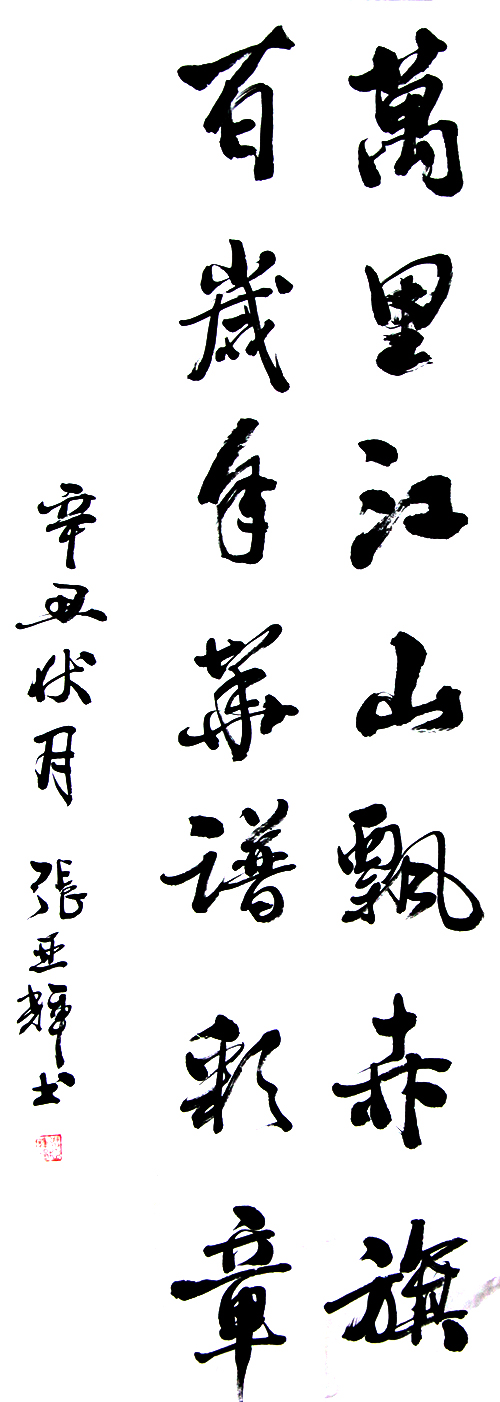 萬里江山飄赤旗
百歲年華譜彩章
辛丑伏月 張亚輝书